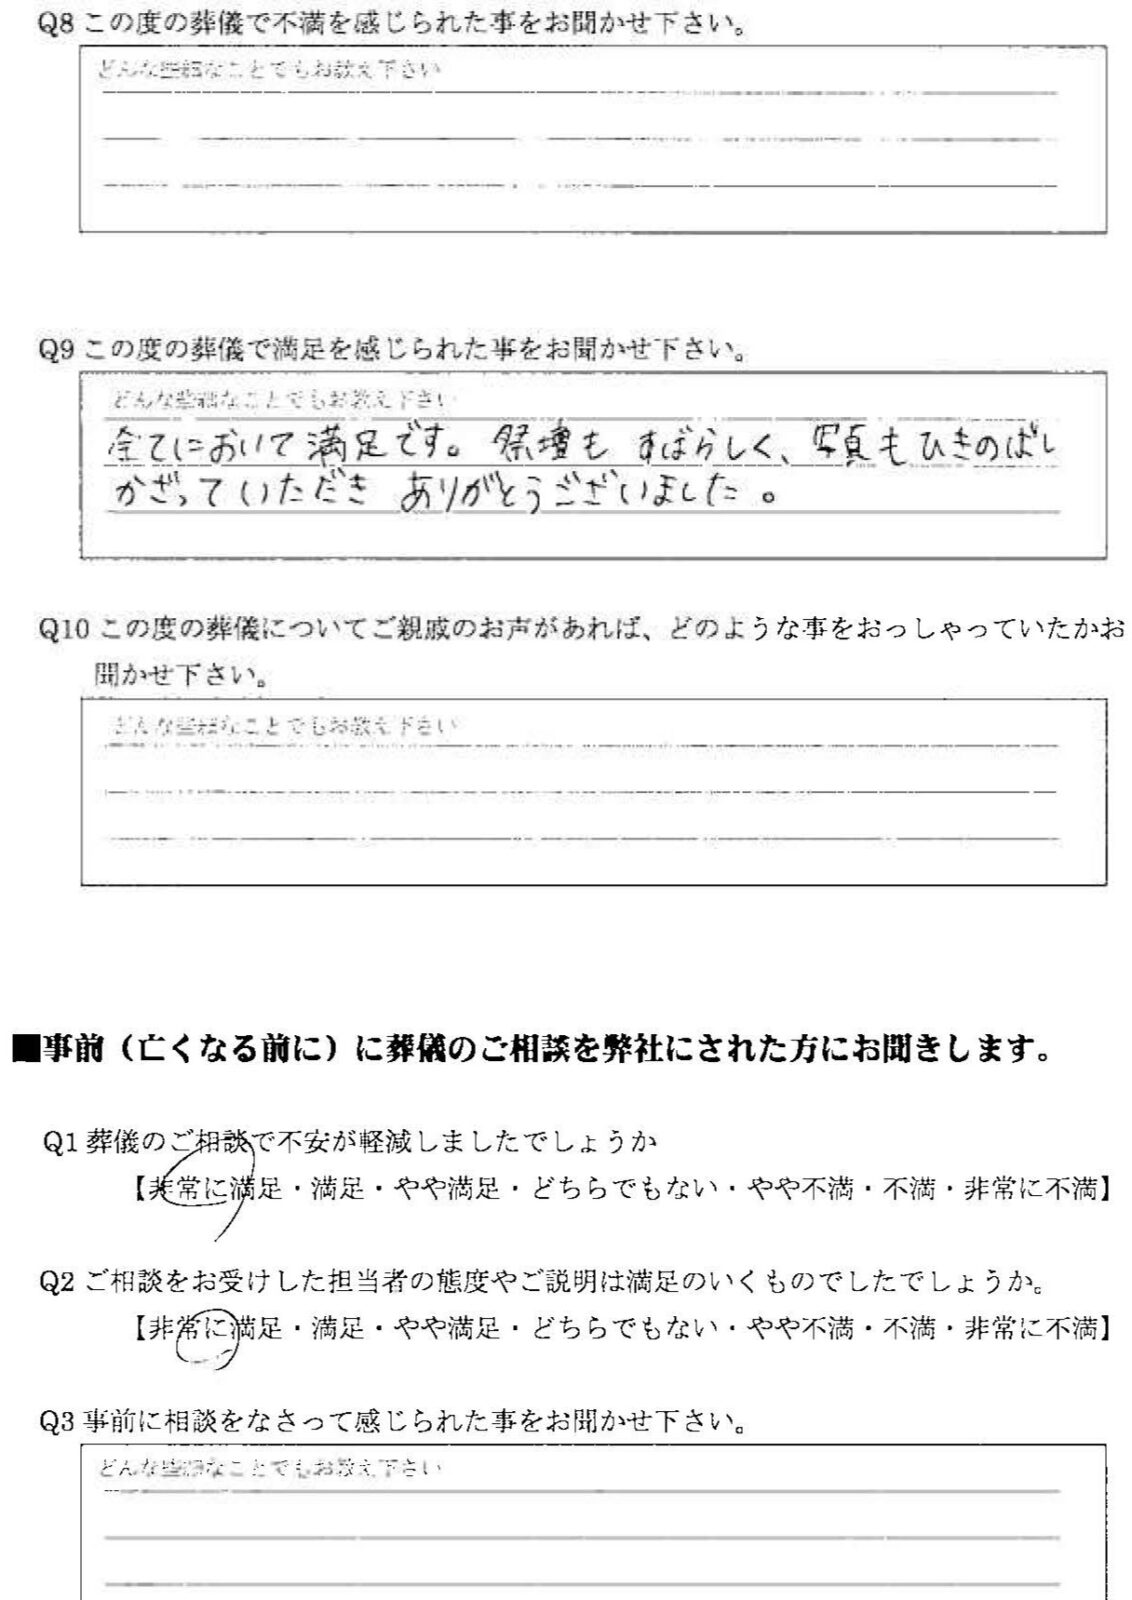 Q8 この度の葬儀で不満を感じられた事をお聞かせ下さい。
どんな些細なことでもお教え下さい
Q9 この度の葬儀で満足を感じられた事をお聞かせ下さい。
どんな些細なことでもお教え下さい
全てにおいて満足です。祭壇も すばらしく、写真もひきのばし
かざっていただき ありがとうございました。
Q10 この度の葬儀についてご親戚のお声があれば、どのような事をおっしゃっていたかお
聞かせ下さい。
どんな些細なことでもお教え下さい
■事前（亡くなる前に）に葬儀のご相談を弊社にされた方にお聞きします。
Q1 葬儀のご相談で不安が軽減しましたでしょうか
【非常に満足・満足・やや満足・どちらでもない・やや不満・不満・非常に不満】
Q2 ご相談をお受けした担当者の態度やご説明は満足のいくものでしたでしょうか。
【非常に満足・満足・やや満足・どちらでもない・やや不満・不満・非常に不満】
Q3 事前に相談をなさって感じられた事をお聞かせ下さい。
どんな些細なことでもお教え下さい